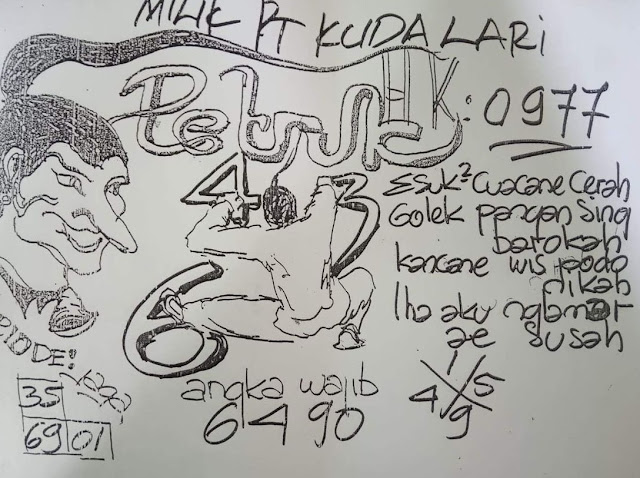 MILIK PT KUDA LARI
Petruk HK: 0977
4 3
6
Esuk² cuacane cerah
Golek pangan sing
barokah
kancane wis podo
nikah
lha aku nglamar
ae susah
PIODE:
35
69 01
angka wajib
6490
1
4 5
9